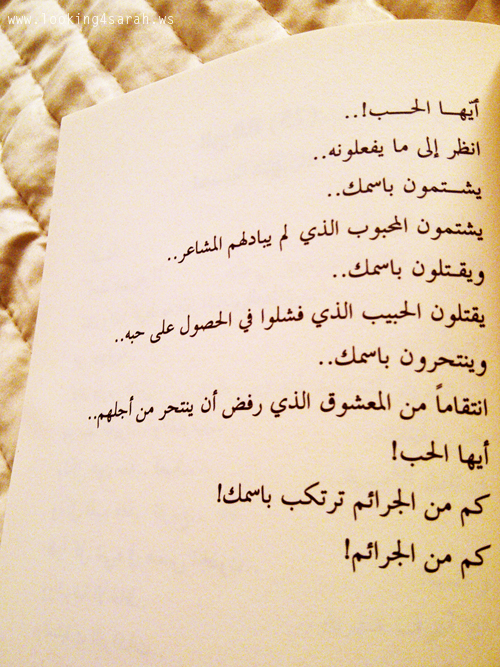 www.looking4sarah.ws
أيّهـا الحـب!..
انظر إلى ما يفعلونه..
يشـتمون باسمك..
يشتمون المحبوب الذي لم يبادلهم المشاعر..
ويقـتلون باسمك..
يقتلون الحبيب الذي فشلوا في الحصول على حبه..
وينتحرون باسمك..
انتقاماً من المعشوق الذي رفض أن ينتحر من أجلهم..
أيها الحب!
كم من الجرائم ترتكب باسمك!
كم من الجرائم!